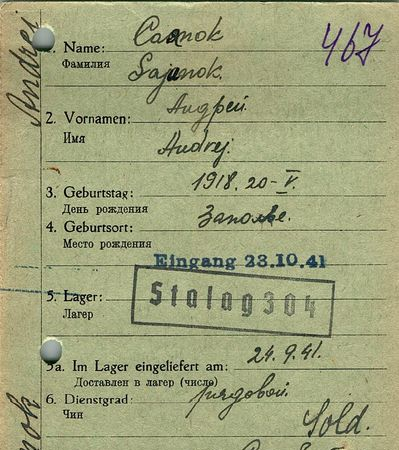 467
Andrej
1. Name: Саянок
Фамилия Sajanok.
2. Vornamen: Андрей.
Имя Andrej.
3. Geburtstag: 1918. 20-V.
День рождения
4. Geburtsort: Заполье.
Место рождения
Eingang 23.10.41
5. Lager: Stalag 304
Лагер
5a. Im Lager eingeliefert am: 24.9.41.
Доставлен в лагер (число)
6. Dienstgrad: рядовой.
Чин Sold.